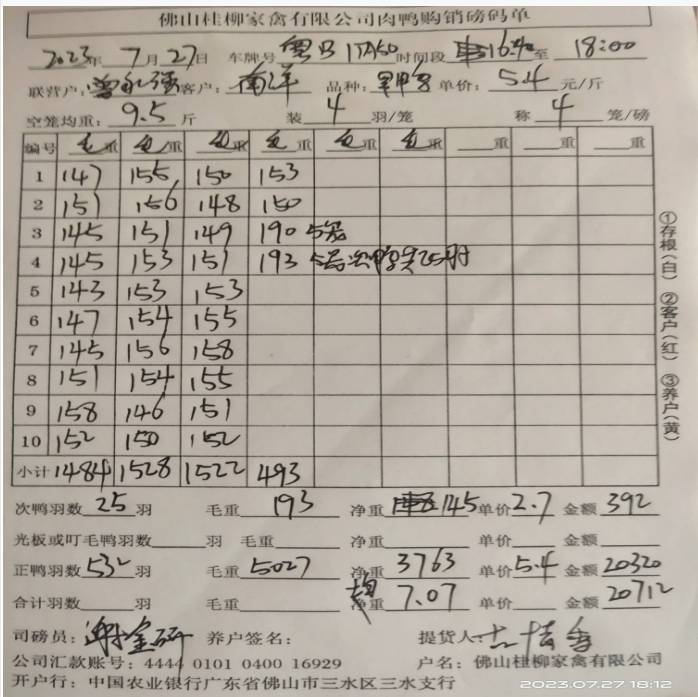 佛山桂柳家禽有限公司肉鸭购销磅码单
2023年 7月 27日 车牌号 粤 17A50 时间段 16:40至 18:00
联营户: 曾 强 客户: 南洋 品种: 单价: 5.4 元/斤
空笼均重: 9.5 斤 装 4 羽/笼 称 4 笼/磅
编号 毛重 毛重 毛重 毛重 毛重 毛重 重 重 重
1 147 155 150 153
2 151 156 148 150
3 145 151 149 190 5笼
4 145 153 151 193 5笼次鸭
5 143 153 153
6 147 154 155
7 145 156 158
8 151 154 155
9 158 146 151
10 152 150 152
小计 1484 1528 1522 493
次鸭羽数 25 羽 毛重 193 净重 145 单价 2.7 金额 392
光板或叮毛鸭羽数 羽 毛重 净重 单价 金额
正鸭羽数 532 羽 毛重 5027 净重 3763 单价 5.4 金额 20320
合计羽数 羽 毛重 均重 7.07 单价 金额 20712
司磅员: 养户签名: 提货人:
公司汇款账号: 4444 0101 0400 16929 户名: 佛山桂柳家禽有限公司
开户行: 中国农业银行广东省佛山市三水区三水支行
①存根(白) ②客户(红) ③养户(黄)
2023.07.27 18:12